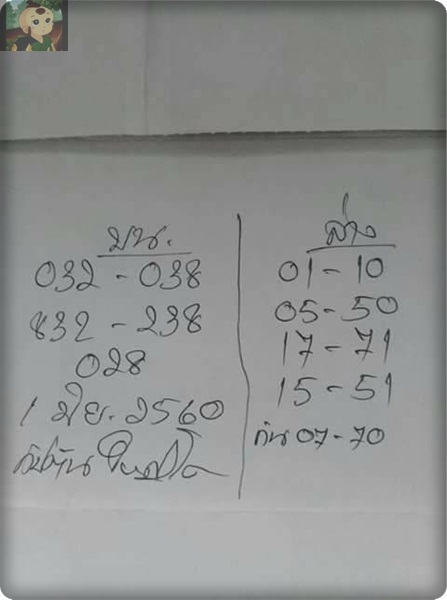 บน.
032 - 038
832 - 238
028
1 มิย. 2560
ล่าง
01 - 10
05 - 50
17 - 71
15 - 51
กัน 07 - 70